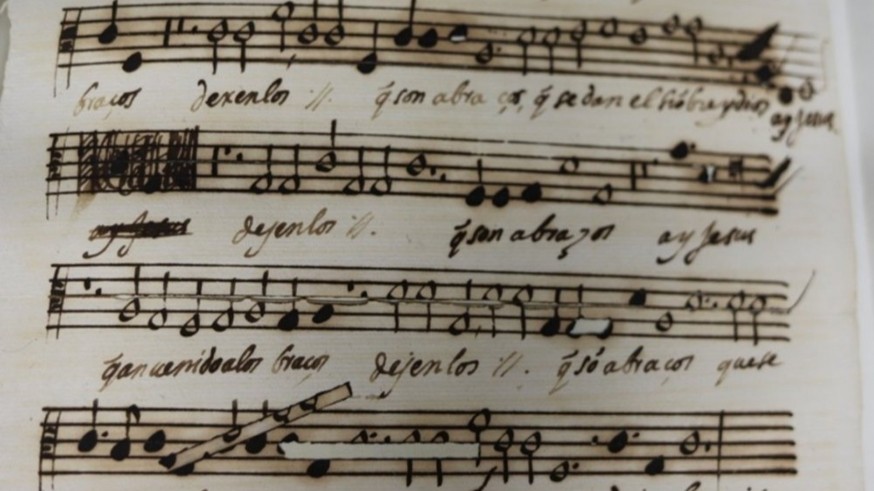 braços dexenlos :||. q̃ son abraços, q̃ se dan el hōbre y dios ay Jesus
ay Jesus dejenlos :||. q̃ son abrazos ay Jesus
q̃ an uenido a los braços dejenlos :||. q̃ sō abraços que se